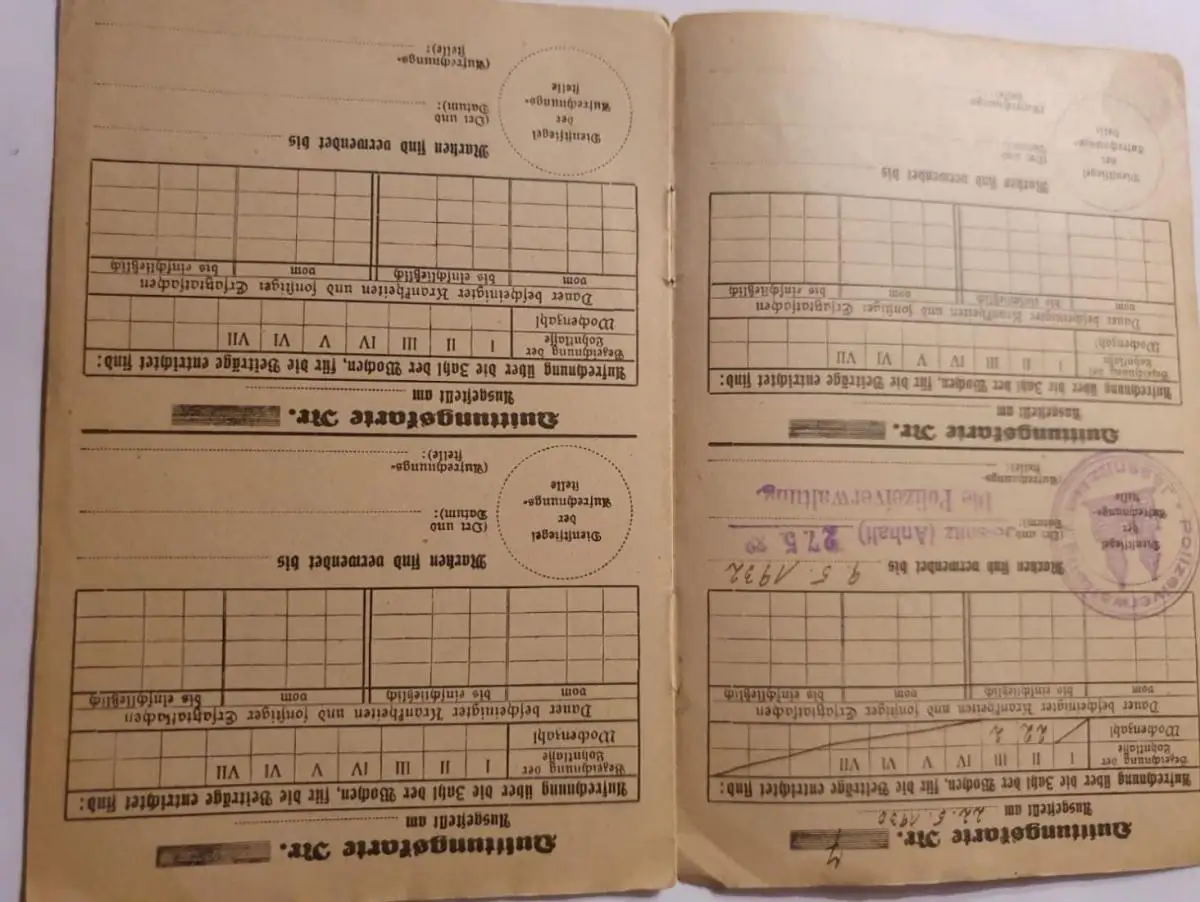 Quittungskarte Nr. 7
Ausgestellt am 22. 5. 1930
Aufrechnung über die Zahl der Wochen, für die Beiträge entrichtet sind:
Bezeichnung der
Lohnklasse I II III IV V VI VII
Wochenzahl 22 2
Dauer bescheinigter Krankheiten und sonstiger Ersatztatsachen
vom bis einschließlich vom bis einschließlich
Dienstsiegel
der
Aufrechnungs-
stelle
Polizeiverwaltung
Marken sind verwendet bis 9. 5. 1932
(Ort und
Datum): (Anhalt) 27. 5.
Die Polizeiverwaltung.
(Aufrechnungs-
stelle):
Quittungskarte Nr.
Ausgestellt am
Aufrechnung über die Zahl der Wochen, für die Beiträge entrichtet sind:
Bezeichnung der
Lohnklasse I II III IV V VI VII
Wochenzahl
Dauer bescheinigter Krankheiten und sonstiger Ersatztatsachen
vom bis einschließlich vom bis einschließlich
Dienstsiegel
der
Aufrechnungs-
stelle
Marken sind verwendet bis
(Ort und
Datum):
(Aufrechnungs-
stelle):
Quittungskarte Nr.
Ausgestellt am
Aufrechnung über die Zahl der Wochen, für die Beiträge entrichtet sind:
Bezeichnung der
Lohnklasse I II III IV V VI VII
Wochenzahl
Dauer bescheinigter Krankheiten und sonstiger Ersatztatsachen
vom bis einschließlich vom bis einschließlich
Dienstsiegel
der
Aufrechnungs-
stelle
Marken sind verwendet bis
(Ort und
Datum):
(Aufrechnungs-
stelle):
Quittungskarte Nr.
Ausgestellt am
Aufrechnung über die Zahl der Wochen, für die Beiträge entrichtet sind:
Bezeichnung der
Lohnklasse I II III IV V VI VII
Wochenzahl
Dauer bescheinigter Krankheiten und sonstiger Ersatztatsachen
vom bis einschließlich vom bis einschließlich
Dienstsiegel
der
Aufrechnungs-
stelle
Marken sind verwendet bis
(Ort und
Datum):
(Aufrechnungs-
stelle):